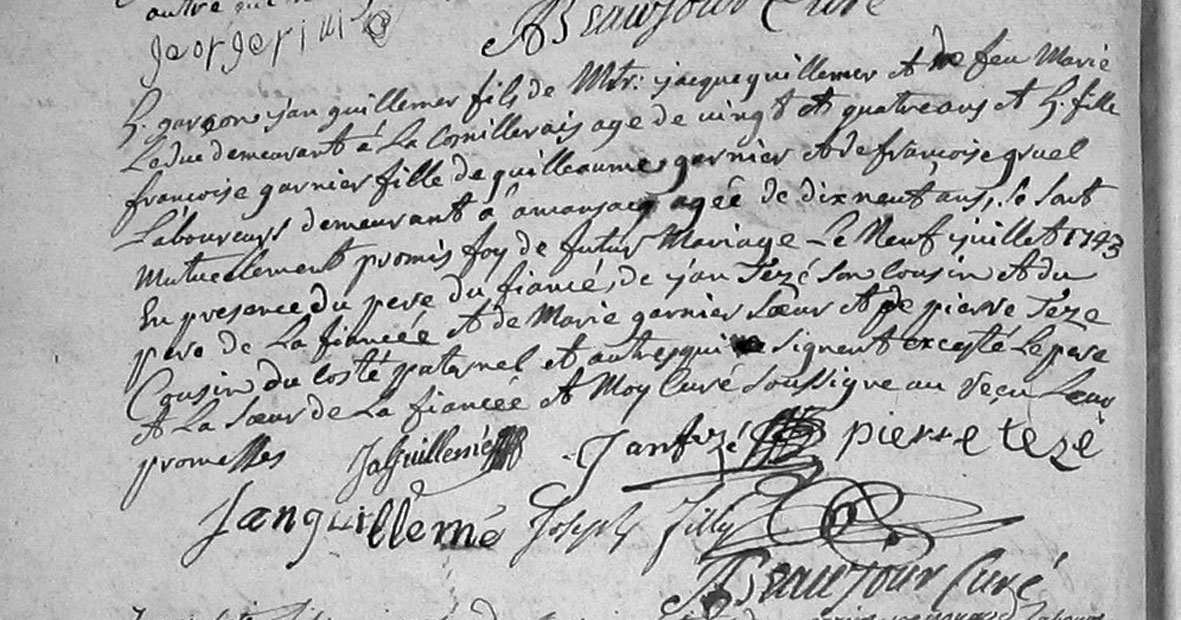 autre que
georgerilli
A Beausour Curé
h. garcon jan guillemer fils de Mtr: jacque guillemer et de feu Marie
Leduc demeurant á La Cornillerais age de vingt et quatre ans et h. fille
françoise garnier fille de guilleaume garnier et de françoise gruel
Laboureurs demeurant a amansacq agée de dix neuf ans, se sont
mutuellement promis foy de futur Mariage Le Neuf juillet 1743
En presence du pere du fiancé, de jan Tezé son Cousin et du
pere de La fiancée et de Marie garnier Sœur et de pierre Teze
Cousin du costé paternel et autres qui signent excepté Le pere
et La Sœur de La fiancée et Moy Curé soussigne au reçu Leur
promesses Ja Guillemé Jan tezé pierre tezé
Jan guillemé Joseph Filly
A Beausour Curé